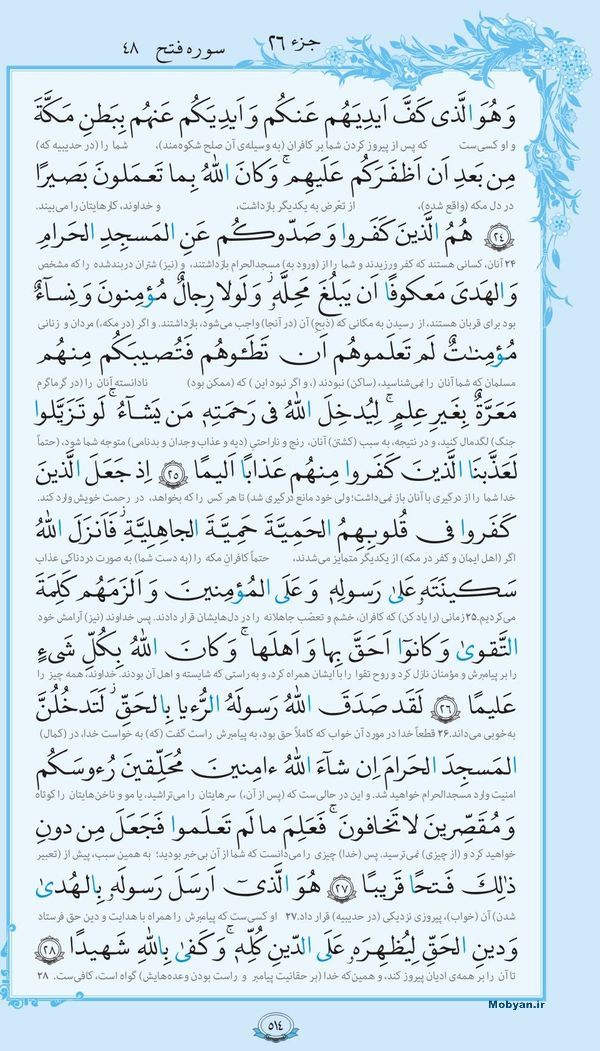 جزء ۲۶ سوره فتح ۴۸
وَ هُوَ الَّذی کَفَّ اَیدِیَهُم عَنکُم وَ اَیدِیَکُم عَنهُم بِبَطنِ مَکَّةَ
و او کسی‌ست که پس از پیروز کردن شما بر کافران (به وسیله‌ی آن صلح شکوه‌مند)، شما را (در حدیبیه که)
مِن بَعدِ اَن اَظفَرَکُم عَلَیهِم ۚ وَ کانَ اللهُ بِما تَعمَلونَ بَصیرًا
در دل مکه (واقع شده)، از تعّرض به یکدیگر بازداشت، و خداوند، کارهایتان را می‌بیند.
﴿۲۴﴾ هُمُ الَّذینَ کَفَروا وَ صَدّوکُم عَنِ المَسجِدِ الحَرامِ
۲۴ آنان، کسانی هستند که کفر ورزیدند و شما را از (ورود به) مسجدالحرام بازداشتند، و (نیز) شتران دربندشده را که مشخص
وَ الهَدیَ مَعکوفًا اَن یَبلُغَ مَحِلَّهُ ۚ وَ لَولا رِجالٌ مُؤمِنونَ وَ نِساءٌ
بود برای قربان هستند، از رسیدن به مکانی که (ذبح) آن (در آنجا) واجب می‌شود، بازداشتند. و اگر (در مکه)، مردان و زنانی
مُؤمِناتٌ لَم تَعلَموهُم اَن تَطَئوهُم فَتُصیبَکُم مِنهُم
مسلمان که شما آنان را نمی‌شناسید، (ساکن) نبودند (، و اگر نبود این) که (ممکن بود) نادانسته آنان را (در گرماگرم
مَعَرَّةٌ بِغَیرِ عِلمٍ ۖ لِیُدخِلَ اللهُ فی رَحمَتِهِ مَن یَشاءُ ۚ لَو تَزَیَّلوا
جنگ) لگدمال کنید، و در نتیجه، به سبب (کشتن) آنان، رنج و ناراحتی (دیه و عذاب وجدان و بدنامی) متوجه شما شود، (حتماً
لَعَذَّبنَا الَّذینَ کَفَروا مِنهُم عَذابًا اَلیمًا ﴿۲۵﴾ اِذ جَعَلَ الَّذینَ
خدا شما را از درگیری با آنان باز نمی‌داشت؛ ولی خود مانع درگیری شد) تا هر کس را که بخواهد، در رحمت خویش وارد کند.
کَفَروا فی قُلوبِهِمُ الحَمِیَّةَ حَمِیَّةَ الجاهِلِیَّةِ فَاَنزَلَ اللهُ
اگر (اهل ایمان و کفر در مکه) از یکدیگر متمایز می‌شدند، حتماً کافرانِ مکه را (به دست شما) به صورت دردناکی عذاب
سَکینَتَهُ عَلیٰ رَسولِهِ وَ عَلَی المُؤمِنینَ وَ اَلزَمَهُم کَلِمَةَ
می‌کردیم.۲۵ زمانی (را یاد کن) که کافران، خشم و تعصّب جاهلانه را در دل‌هایشان قرار دادند. پس خداوند (نیز) آرامش خود
التَّقویٰ وَ کانوا اَحَقَّ بِها وَ اَهلَها ۚ وَ کانَ اللهُ بِکُلِّ شَیءٍ
را بر پیامبرش و مؤمنان نازل کرد و روح تقوا را با ایشان همراه کرد، و به‌راستی که شایسته و اهل آن بودند. خداوند، همه چیز را
عَلیمًا ﴿۲۶﴾ لَقَد صَدَقَ اللهُ رَسولَهُ الرُّءیا بِالحَقِّ ۖ لَتَدخُلُنَّ
به‌خوبی می‌داند.۲۶ قطعاً خدا در مورد آن خواب که کاملاً حق بود، به پیامبرش راست گفت (که) به خواست خدا، در (کمال)
المَسجِدَ الحَرامَ اِن شاءَ اللهُ ءامِنینَ مُحَلِّقینَ رُءوسَکُم
امنیت وارد مسجدالحرام خواهید شد. و این در حالی‌ست که (پس از آن)، سرهایتان را می‌تراشید، یا مو و ناخن‌هایتان را کوتاه
وَ مُقَصِّرینَ لا تَخافونَ ۖ فَعَلِمَ ما لَم تَعلَموا فَجَعَلَ مِن دونِ
خواهید کرد و (از چیزی) نمی‌ترسید. پس (خدا) چیزی را می‌دانست که شما از آن بی‌خبر بودید؛ به همین سبب، پیش از (تعبیر
ذٰلِکَ فَتحًا قَریبًا ﴿۲۷﴾ هُوَ الَّذی اَرسَلَ رَسولَهُ بِالهُدیٰ
شدن) آن (خواب)، پیروزی نزدیکی (در حدیبیه) قرار داد.۲۷ او کسی‌ست که پیامبرش را همراه با هدایت و دین حق فرستاد
وَ دینِ الحَقِّ لِیُظهِرَهُ عَلَی الدّینِ کُلِّهِ ۚ وَ کَفیٰ بِاللهِ شَهیدًا ﴿۲۸﴾
تا آن را بر همه‌ی ادیان پیروز کند، و همین‌که خدا (بر حقانیت پیامبر و راست بودن وعده‌هایش) گواه است، کافی‌ست. ۲۸
۵۱۴
Mobyan.ir